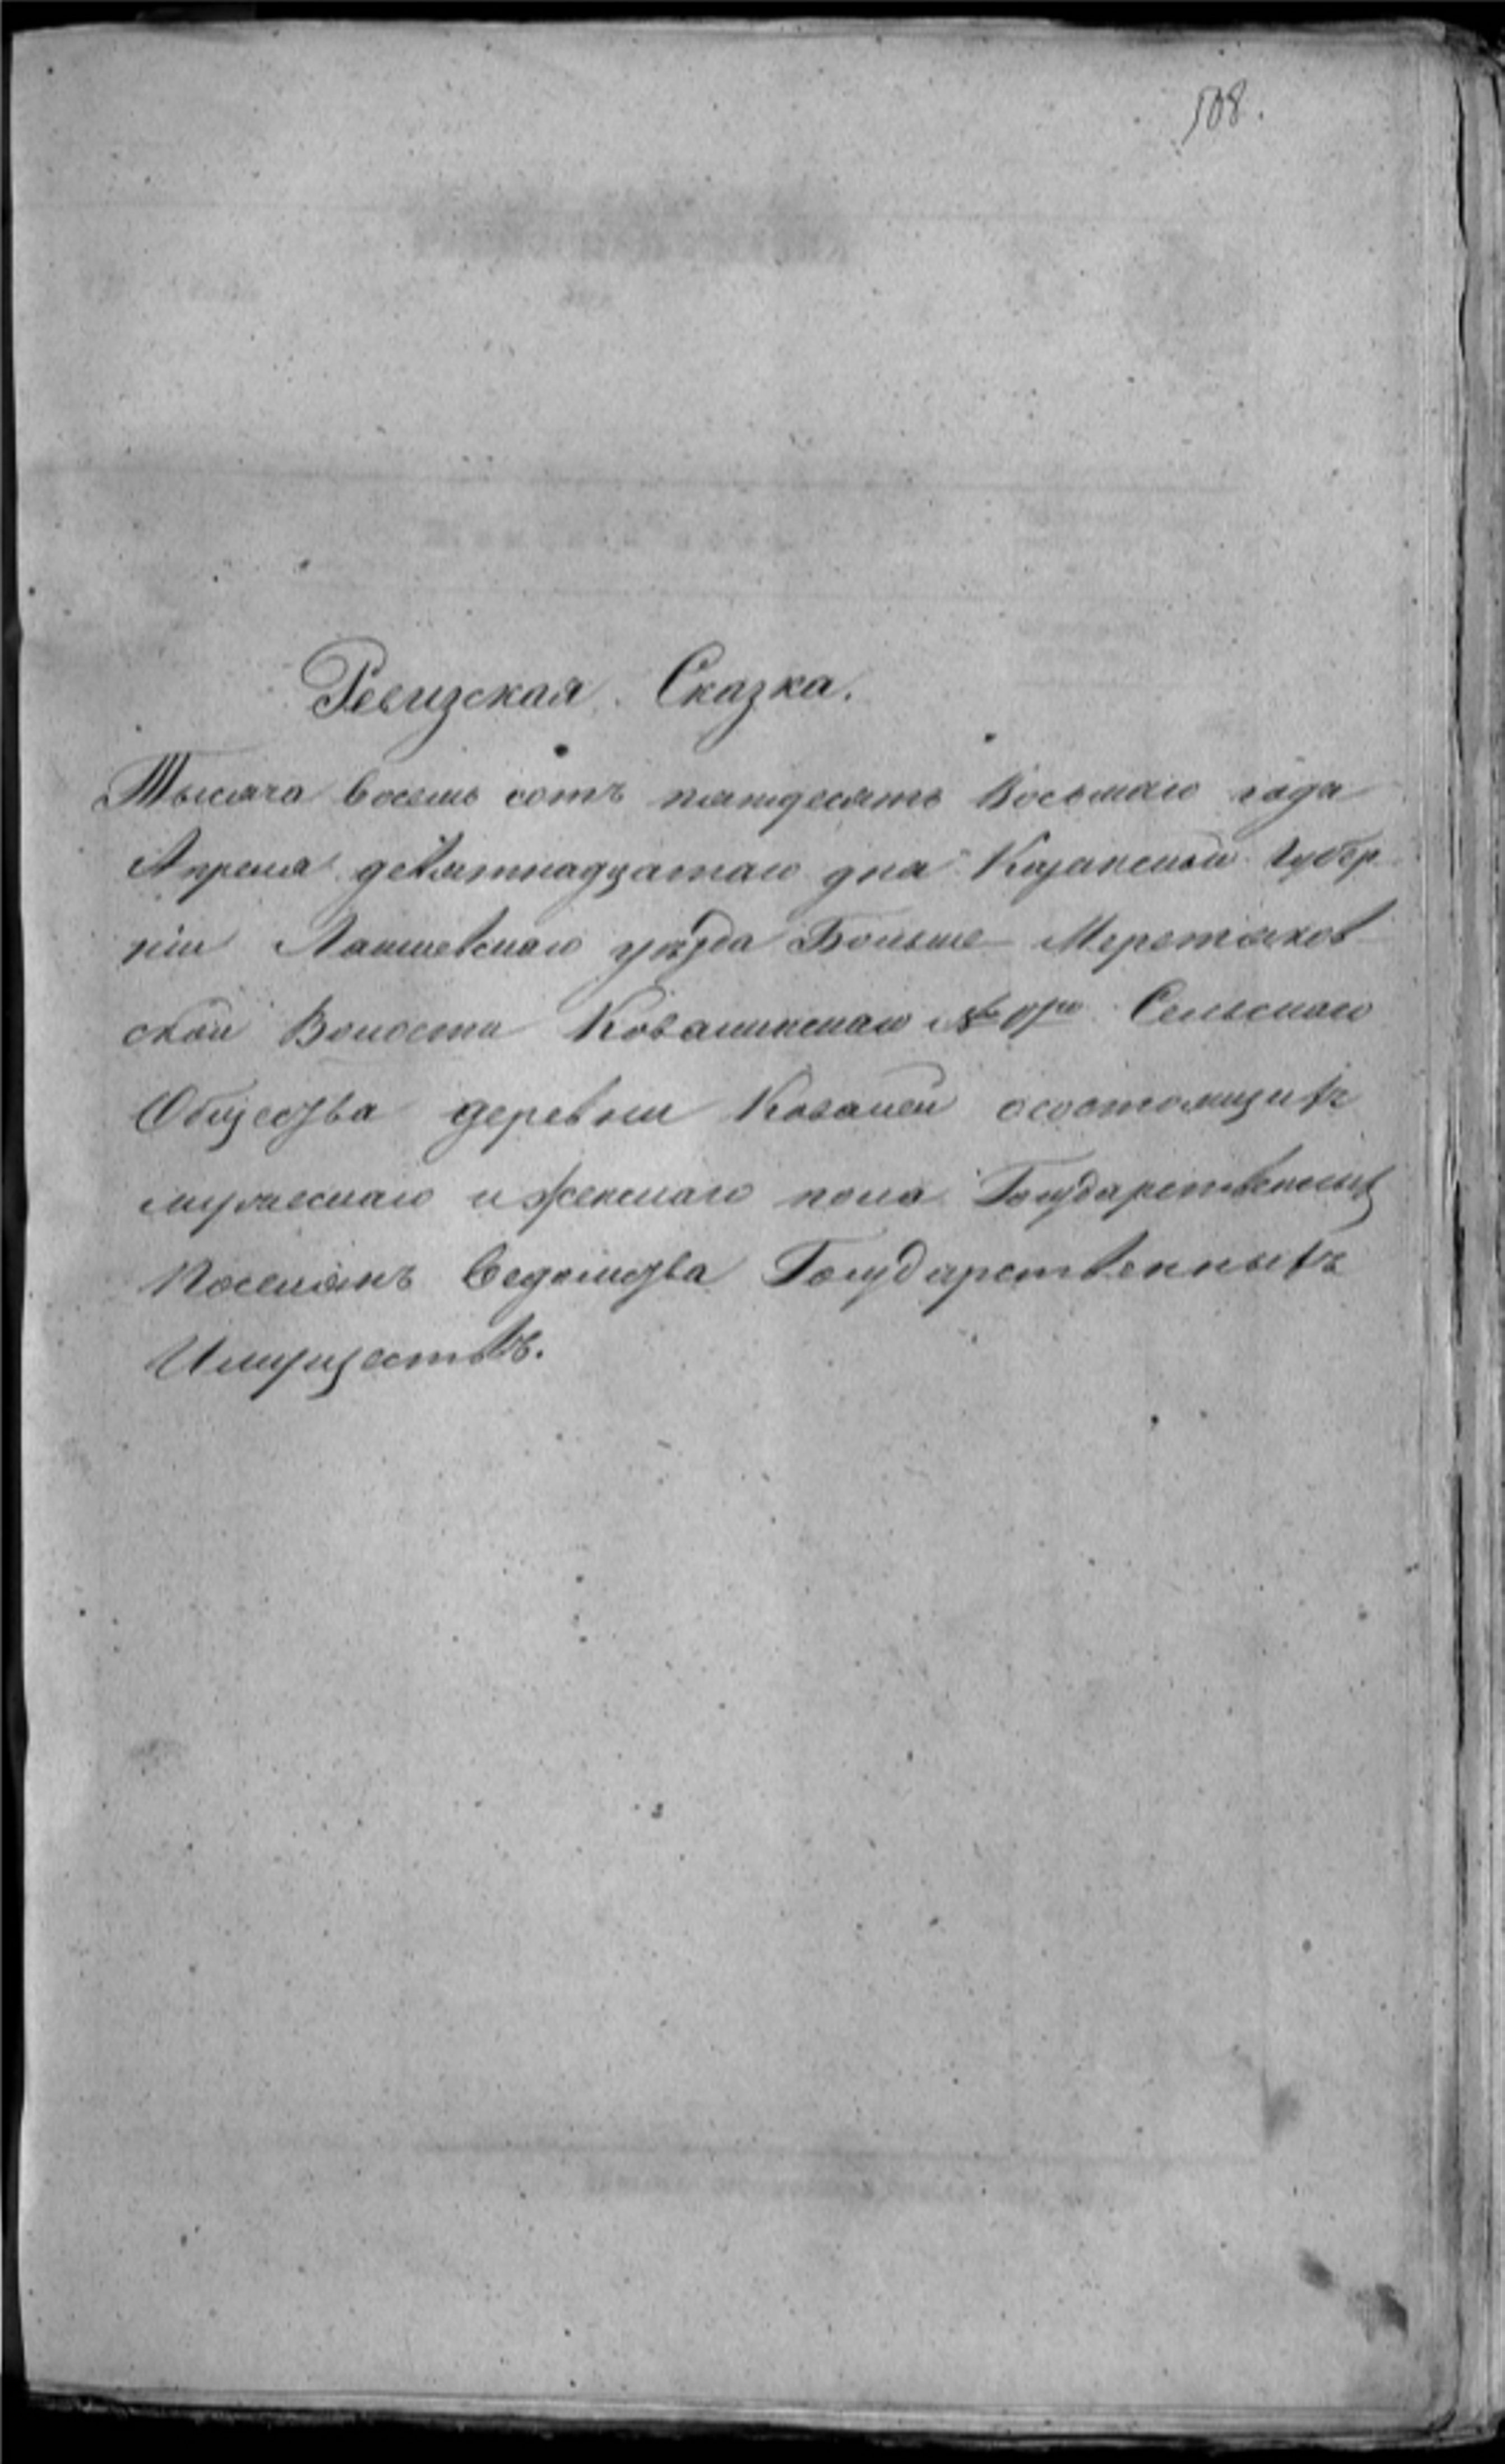 508.
Ревизская Сказка.
Тысяча восемь сотъ пятдесятъ Восьмаго года
Апреля девятнадцатаго дня Казанской Губер
ніи Лаишевскаго уѣзда Больше Меретяков
ской Волости Ковалинскаго Сельскаго
Общества деревни Ковалей осостоящихъ
мужескаго и женскаго пола Государственныхъ
Поселянъ Ведомства Государственныхъ
Имуществъ.